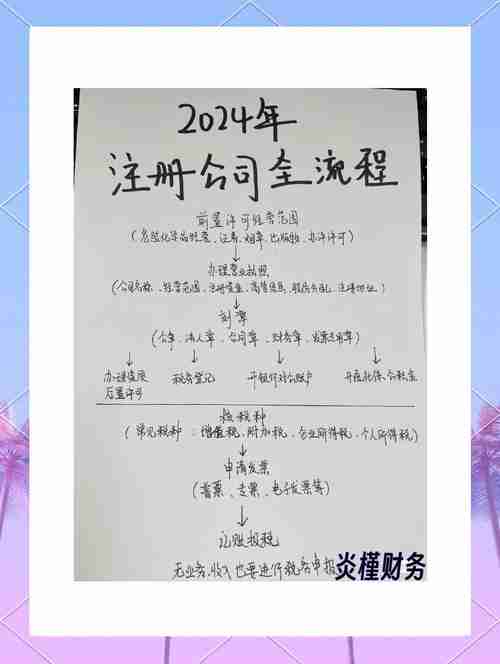 2024年
注册公司全流程
前置许可经营范围
(危险化学品经营、证券、烟草、出版物、办许可)
办理营业执照
(公司名称、经营范围、注册资金、高管信息、股东占比、注册地址)
刻章
(公章、法人章、合同章、财务章、发票专用章)
办理资质 税务登记 开银行对公账户 开通社保、公积金
后置许可
核税种
(常见税种:增值税、附加税、企业所得税、个人所得税)
申请发票
(普票、专票、电子发票等)
记账报税
无业务、收入也要进行税务申报
炎槿财务